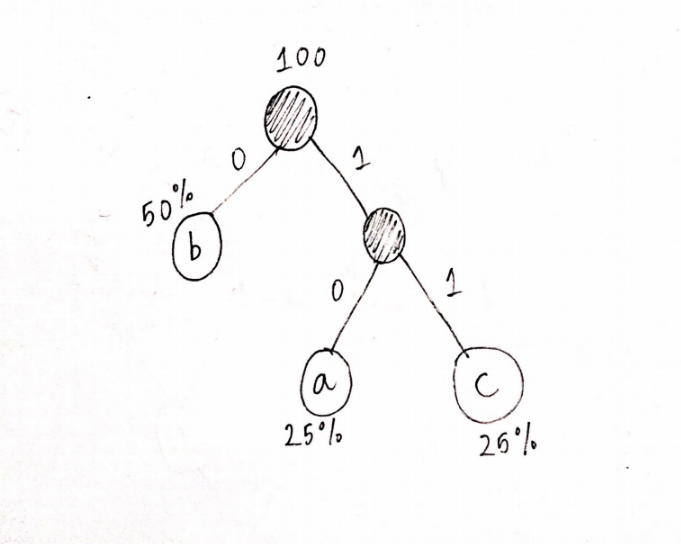 100
0
1
50%
b
0
1
a
c
25%
25%